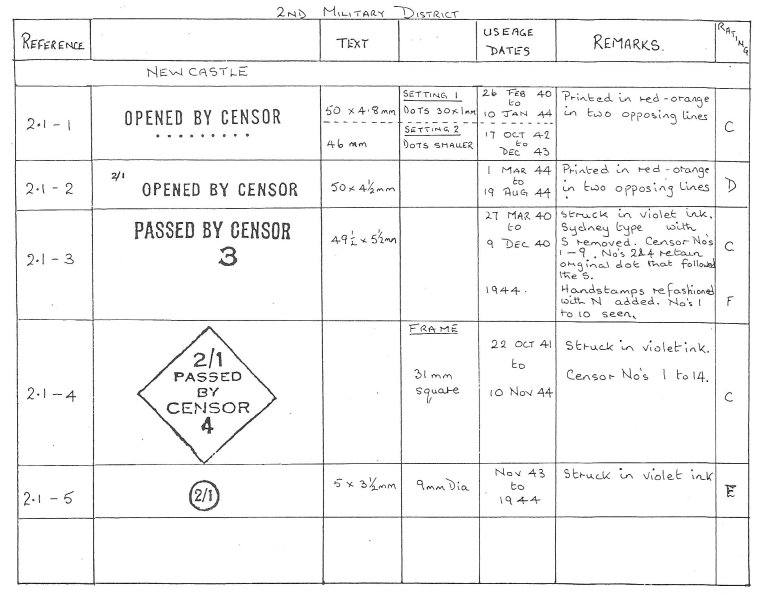 2ND MILITARY DISTRICT
REFERENCE TEXT USEAGE DATES REMARKS. RATING
NEWCASTLE
2.1-1
OPENED BY CENSOR
.........
50 x 4.8mm
46 mm
SETTING 1
DOTS 30x1mm
SETTING 2
DOTS SMALLER
26 FEB 40
to
10 JAN 44
17 OCT 42
to
DEC 43
Printed in red-orange
in two opposing lines
C
2.1-2
2/1
OPENED BY CENSOR
50x4½mm
1 MAR 44
to
19 AUG 44
Printed in red-orange
in two opposing lines
D
2.1-3
PASSED BY CENSOR
3
49½ x 5½mm
27 MAR 40
to
9 DEC 40
1944.
Struck in violet ink.
Sydney type with
S removed. Censor No's
1-9. No's 2&4 retain
original dot that followed
the S.
Handstamps refashioned
with N added. No's 1
to 10 seen.
C
F
2.1-4
2/1
PASSED
BY
CENSOR
4
FRAME
31mm
square
22 OCT 41
to
10 NOV 44
Struck in violet ink.
Censor No's 1 to 14.
C
2.1-5
2/1
5 x 3½mm
9mm Dia
NOV 43
to
1944
Struck in violet ink
E